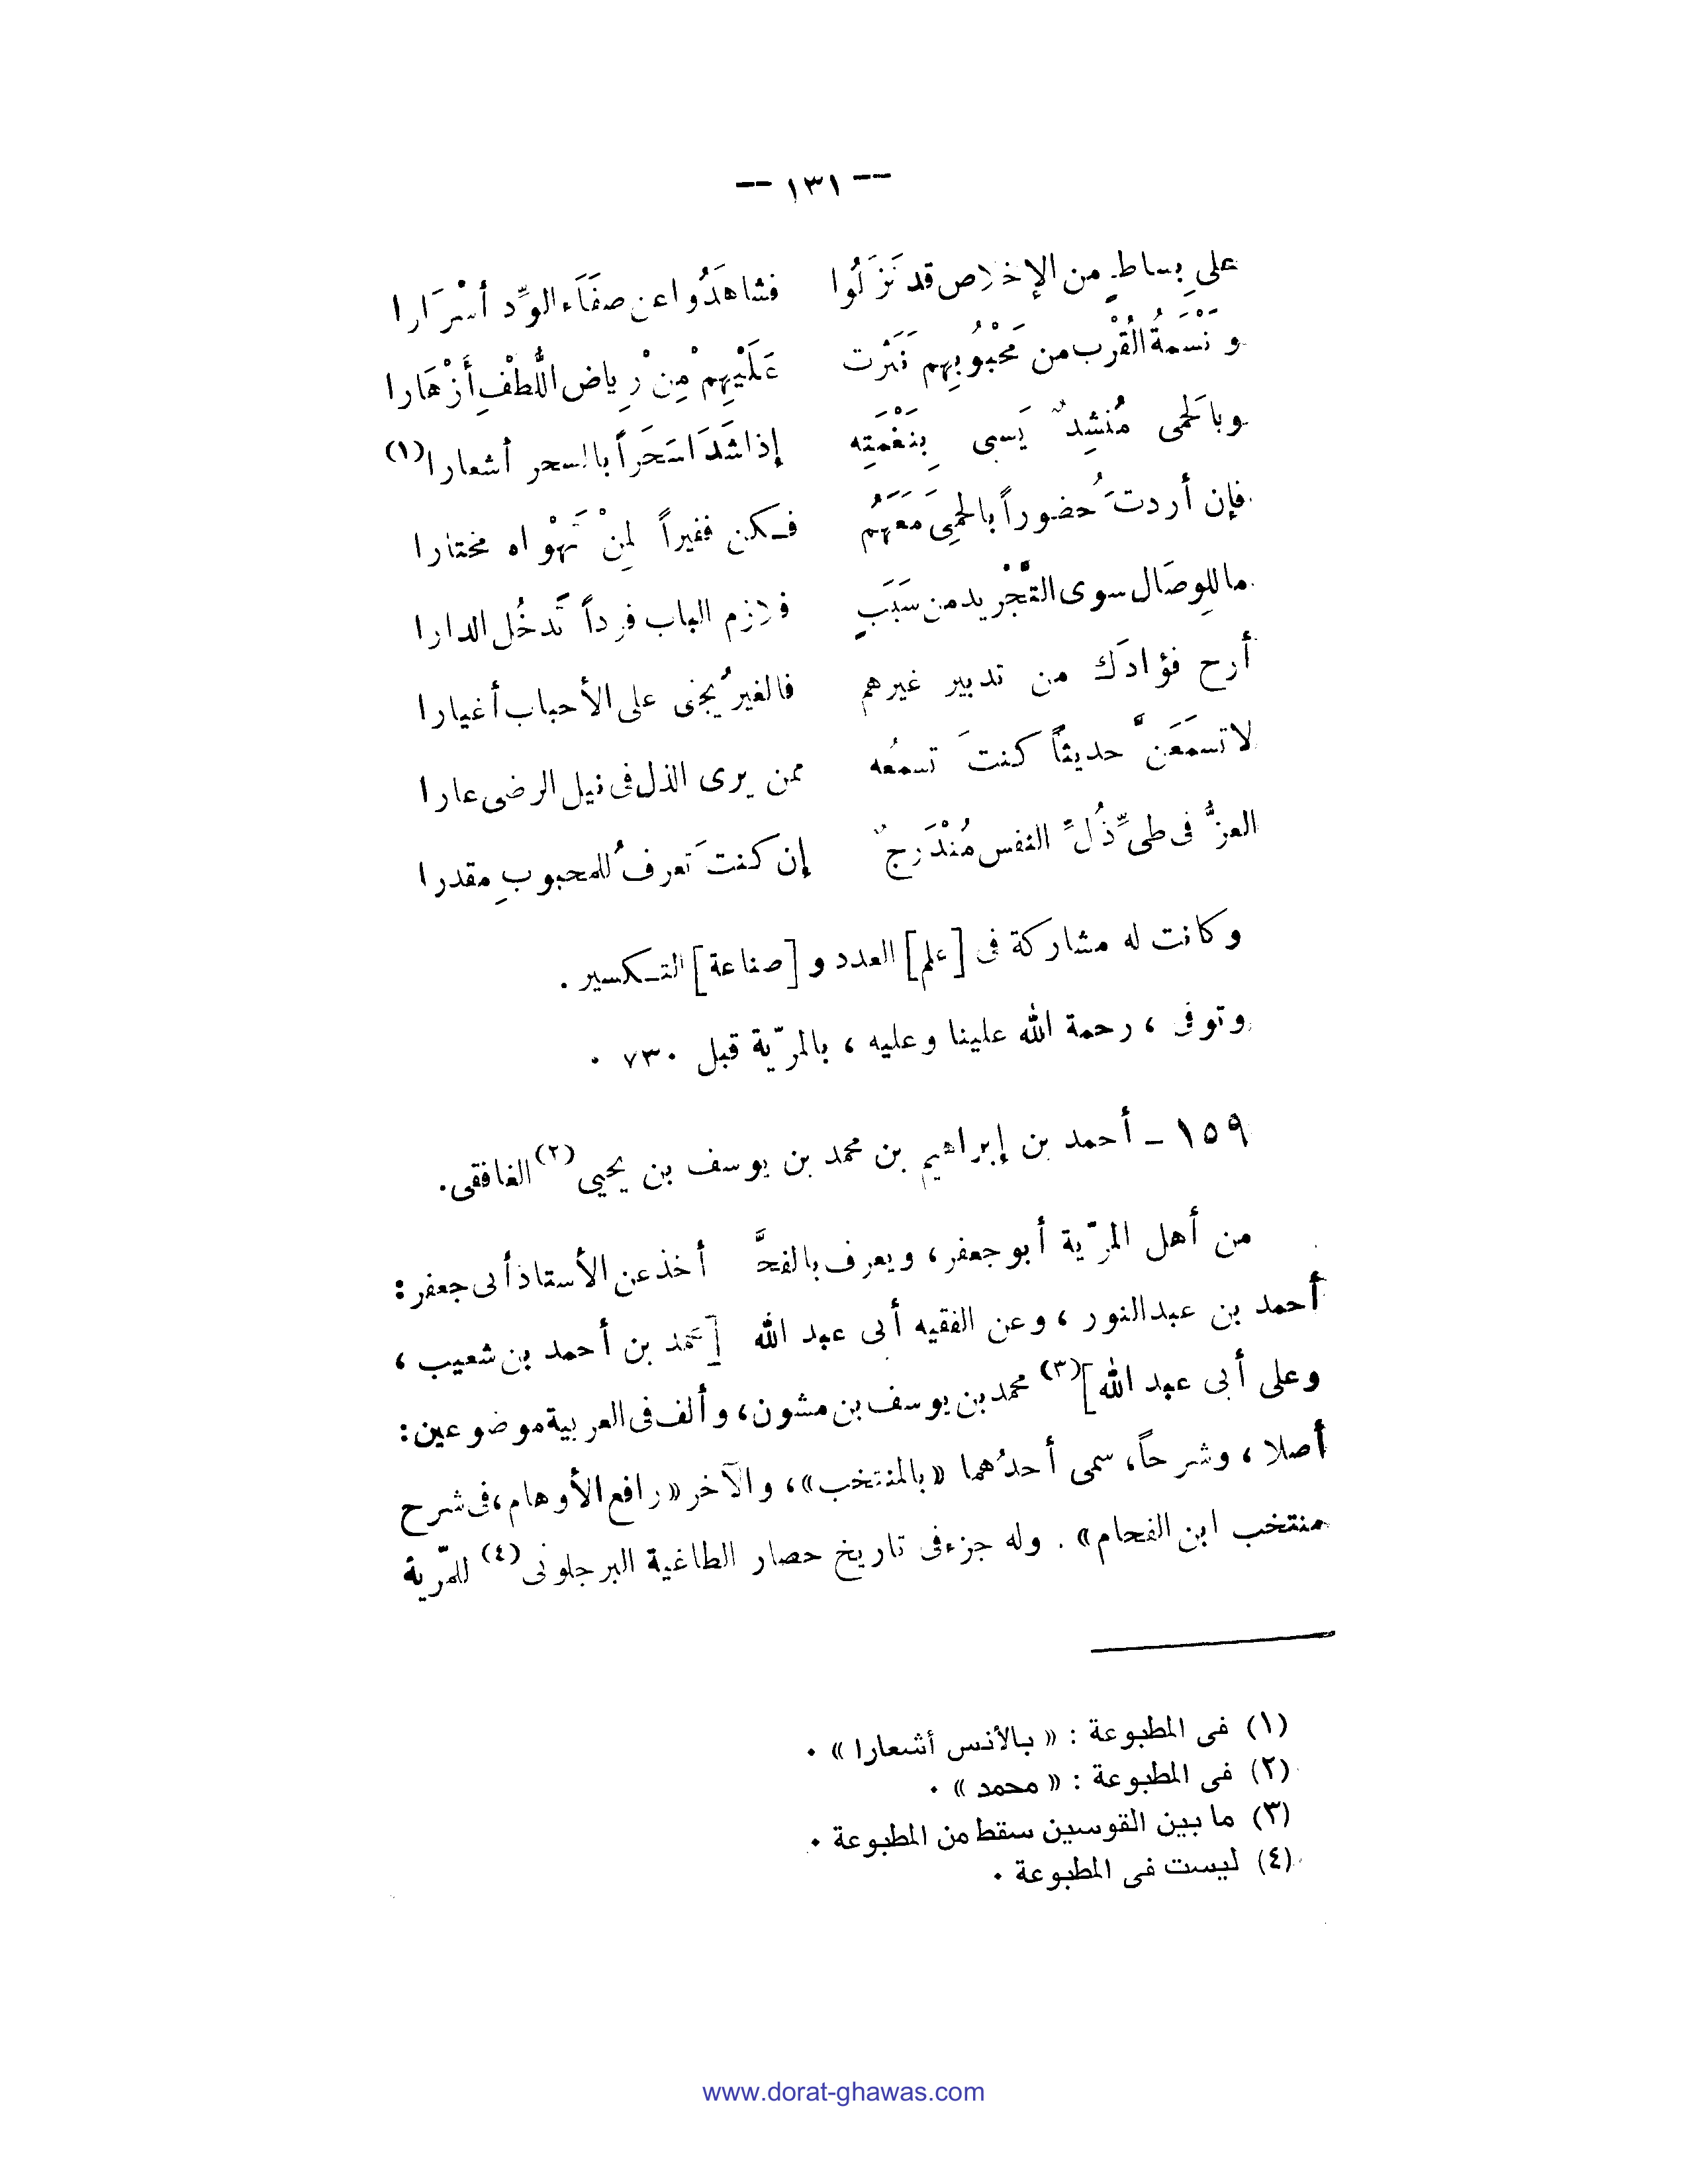 -- ١٣١ --
على بِساطٍ من الإخلاص قد نَزَلُوا فشاهَدُوا عن صفَاَء الوِّد أسْرَارا
و نَسْمَةُ القُرْب من مَحْبُوبِهِم نَثَرت عَلَيْهِمْ مِنْ رِياض اللُّطْفِ أَزْهَارا
وبالَحمى مُنشِدٌ يَسبى بِنَغْمَتِه إذا شَدَا سَحَراً بالسحر أشعارا (١)
فإن أردتَ حُضوراً بالحِمَى مَعَهُم فـكن فقيراً لِمنْ تَهْواه مختارا
ما للِوصَال سوى التَّجْريد من سَبَبٍ فلازم الباب فرداً تَدخُل الدارا
أرح فؤادَك من تدبير غيرهم فالغيرُ يجنى على الأحباب أغيارا
لا تسمَعَنَّ حديثاً كنتَ تسمعُه ممن يرى الذل فى نيل الرضى عارا
العزُّ فى طىِّ ذُلِّ النفس مُنْدَرجٌ إن كنتَ تعرفُ للمحبوبِ مقدرا
وكانت له مشاركة فى [علم] العدد و [صناعة] التـكسير .
وتوفى ، رحمة الله علينا وعليه ، بالمرّية قبل ٧٣٠ .
١٥٩ – أحمد بن إبراهيم بن محمد بن يوسف بن يحيى (٢) الغافقى.
من أهل المرّية أبو جعفر، ويعرف بالفحَّ أخذ عن الأستاذ أبى جعفر :
أحمد بن عبد النور ، وعن الفقيه أبى عبد الله [محمد بن أحمد بن شعيب ،
وعلى أبى عبد الله] (٣) محمد بن يوسف بن مشون، وألف فى العربية موضوعين:
أصلا ، وشرحاً، سمى أحدُهما «بالمنتخب»، والآخر «رافع الأوهام، فى شرح
منتخب ابن الفحام» . وله جزء فى تاريخ حصار الطاغية البرجلونى (٤) للمرّية
(١) فى المطبوعة : « بالأنس أشعارا » .
(٢) فى المطبوعة : « محمد » .
(٣) ما بين القوسين سقط من المطبوعة .
(٤) ليست فى المطبوعة .
www.dorat-ghawas.com